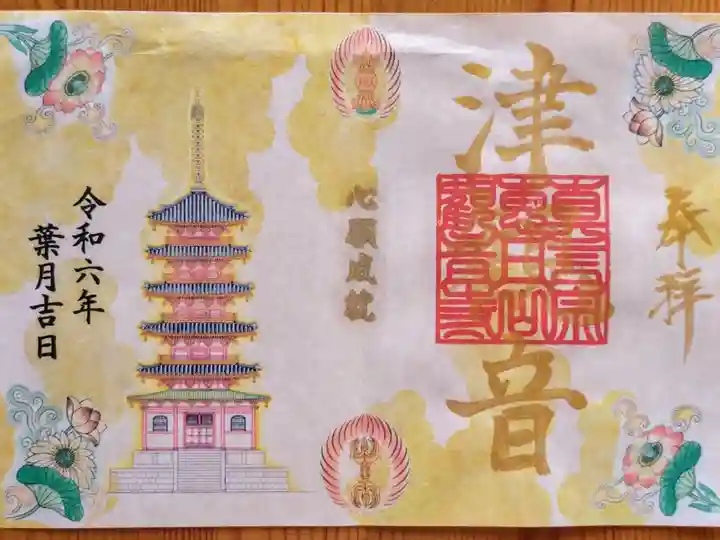 奉拝
津観音
真言宗
惠日山
觀音寺
心願成就
令和六年
葉月吉日